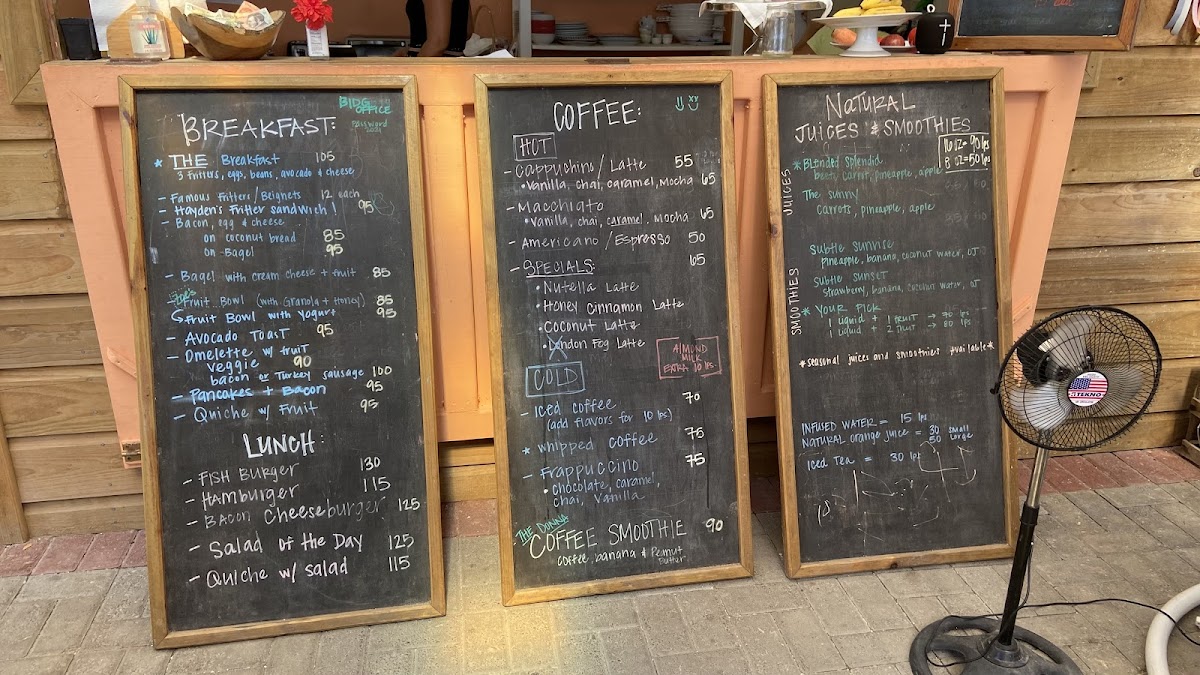 BREAKFAST:
BIDG OFFICE
Password
* THE Breakfast 105
3 fritters, eggs, beans, avocado & cheese
- Famous Fritters / Beignets 12 each
- Hayden's Fritter sandwich! 95
- Bacon, egg & cheese
on coconut bread 85
on Bagel 95
- Bagel with cream cheese + fruit 85
- Fruit Bowl (with Granola + Honey) 85
Fruit Bowl with Yogurt 95
- Avocado Toast 95
- Omelette w/ fruit
veggie 90
bacon or Turkey sausage 100
- Pancakes + Bacon 95
- Quiche w/ Fruit 95
LUNCH:
- FISH Burger 130
- Hamburger 115
- Bacon Cheeseburger 125
- Salad of the Day 125
- Quiche w/ salad 115
COFFEE:
HOT
- Cappuchino / Latte 55
• Vanilla, chai, caramel, Mocha 65
- Macchiato
• Vanilla, chai, caramel, Mocha 65
- Americano / Espresso 50
- SPECIALS: 65
• Nutella Latte
• Honey Cinnamon Latte
• Coconut Latte
• London Fog Latte
ALMOND
MILK
EXTRA 10 LPS
COLD
- Iced coffee 70
(add flavors for 10 lps)
* whipped coffee 75
- Frappuccino 75
• chocolate, caramel,
chai, Vanilla
THE DONNA
COFFEE SMOOTHIE 90
coffee, banana & Peanut
Butter
NATURAL
JUICES & SMOOTHIES
16 oz = 90 lps
8 oz = 50 lps
JUICES
* Blended Splendid
beets, carrot, pineapple, apple
The Sunny
carrots, pineapple, apple
SMOOTHIES
Subtle Sunrise
pineapple, banana, coconut water, OJ
Subtle Sunset
strawberry, banana, coconut water, OJ
* YOUR PICK
1 Liquid + 1 FRUIT → 70 lps
1 Liquid + 2 FRUIT → 80 lps
* seasonal juices and smoothies available *
INFUSED WATER = 15 lps
NATURAL orange juice = 30 small
50 large
Iced Tea = 30 lps
TEKNO